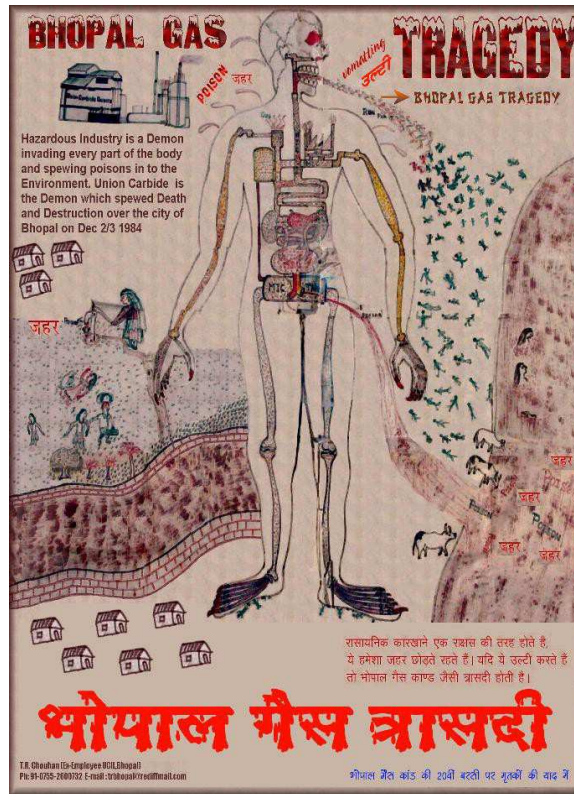 BHOPAL GAS
TRAGEDY
POISON जहर
vomatting
उल्टी
BHOPAL GAS TRAGEDY
Hazardous Industry is a Demon
invading every part of the body
and spewing poisons in to the
Environment. Union Carbide is
the Demon which spewed Death
and Destruction over the city of
Bhopal on Dec 2/3 1984
जहर
MIC
जहर
जहर
Poison
जहर
जहर
रासायनिक कारखाने एक राक्षस की तरह होते है,
ये हमेशा जहर छोड़ते रहते हैं। यदि ये उल्टी करते है
तो भोपाल गैस काण्ड जैसी त्रासदी होती है।
भोपाल गैस त्रासदी
T.R. Chouhan (Ex-Employee UCIL,Bhopal)
Ph: 91-0755-2600732 E-mail : trbhopal@rediffmail.com
भोपाल गैस कांड की 20वीं बरसी पर मृतकों की याद में